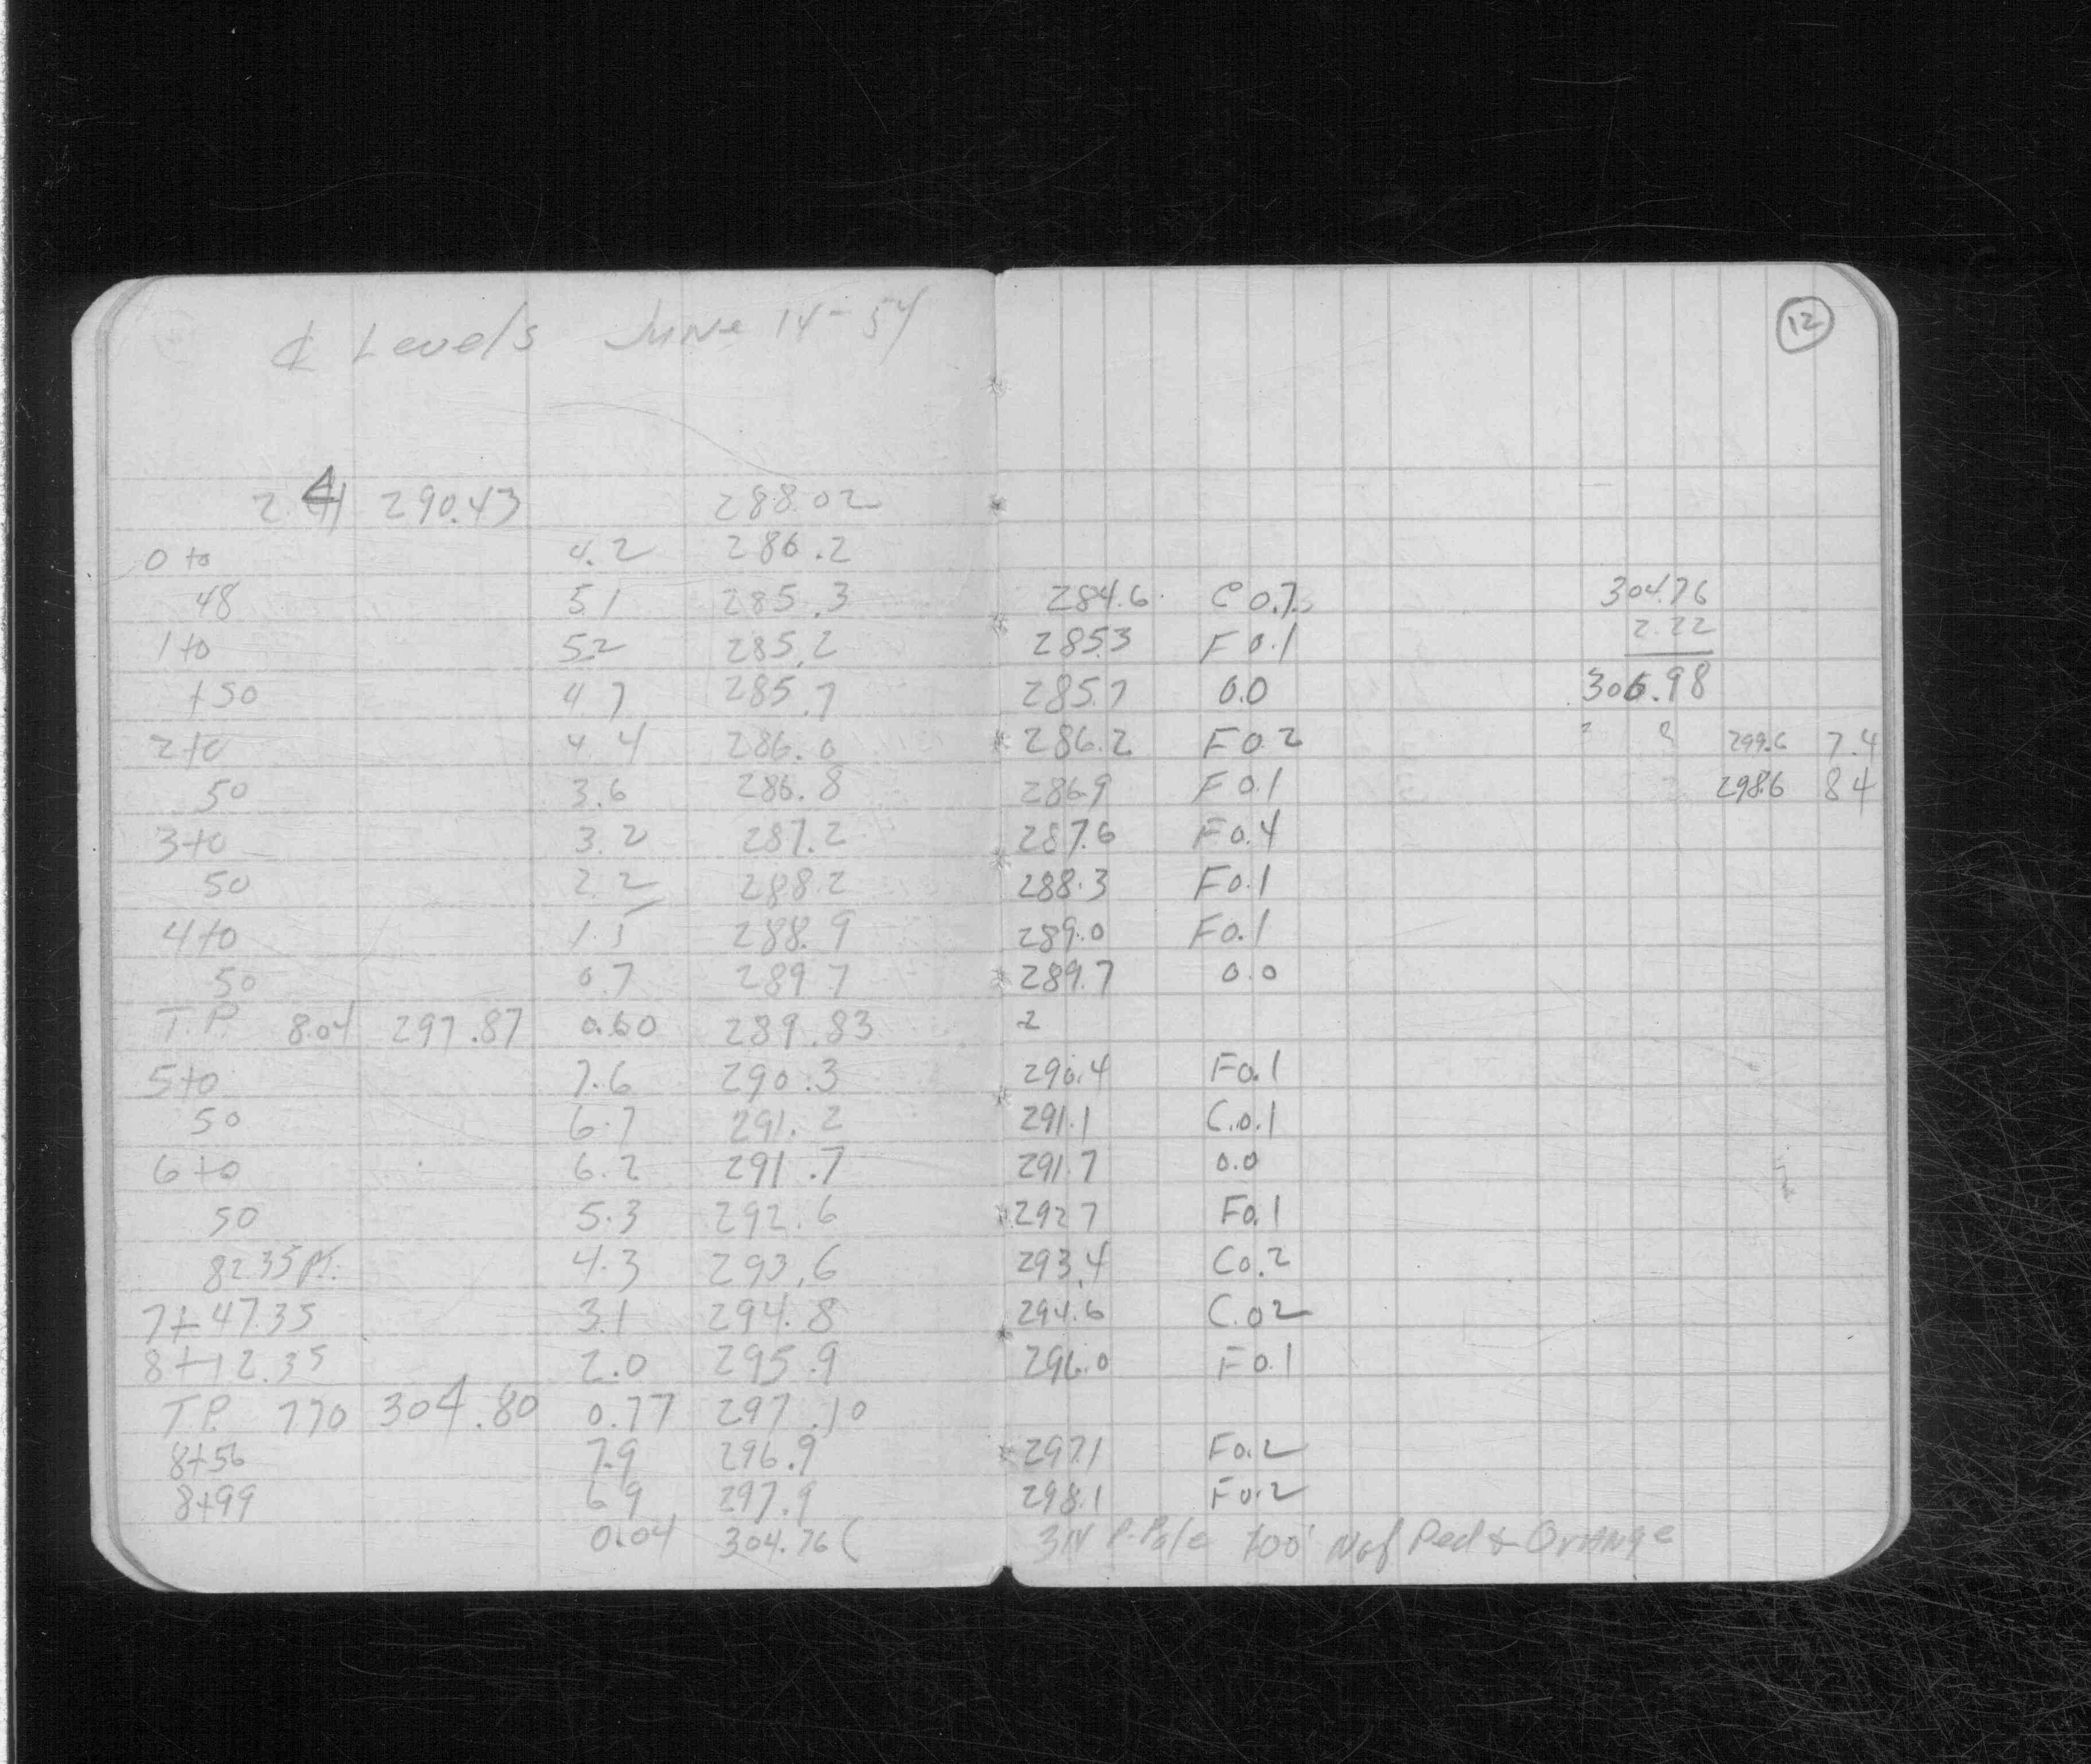 ⅊ Levels June 14-54
12
2.41 290.43 288.02
0+0 4.2 286.2
48 5.1 285.3 284.6 C 0.7 304.76
1+0 5.2 285.2 285.3 F 0.1 2.22
+50 4.7 285.7 285.7 0.0 306.98
2+0 4.4 286.0 286.2 F 0.2 ? ? 299.6 7.4
50 3.6 286.8 286.9 F 0.1 298.6 8 4
3+0 3.2 287.2 287.6 F 0.4
50 2.2 288.2 288.3 F 0.1
4+0 1.5 288.9 289.0 F 0.1
50 0.7 289.7 289.7 0.0
T.P. 8.04 297.87 0.60 289.83 2
5+0 7.6 290.3 290.4 F 0.1
50 6.7 291.2 291.1 C.0.1
6+0 6.2 291.7 291.7 0.0
50 5.3 292.6 292 7 F 0.1
82.35 Pt. 4.3 293.6 293.4 C 0.2
7+47.35 3.1 294.8 294.6 C.02
8+12.35 2.0 295.9 296.0 F 0.1
T.P. 770 304.80 0.77 297.10
8+56 7.9 296.9 297.1 F 0.2
8+99 6 9 297.9 298.1 F 0.2
0.04 304.76 ( 3N P.Pole 100' N of Ped & Orange